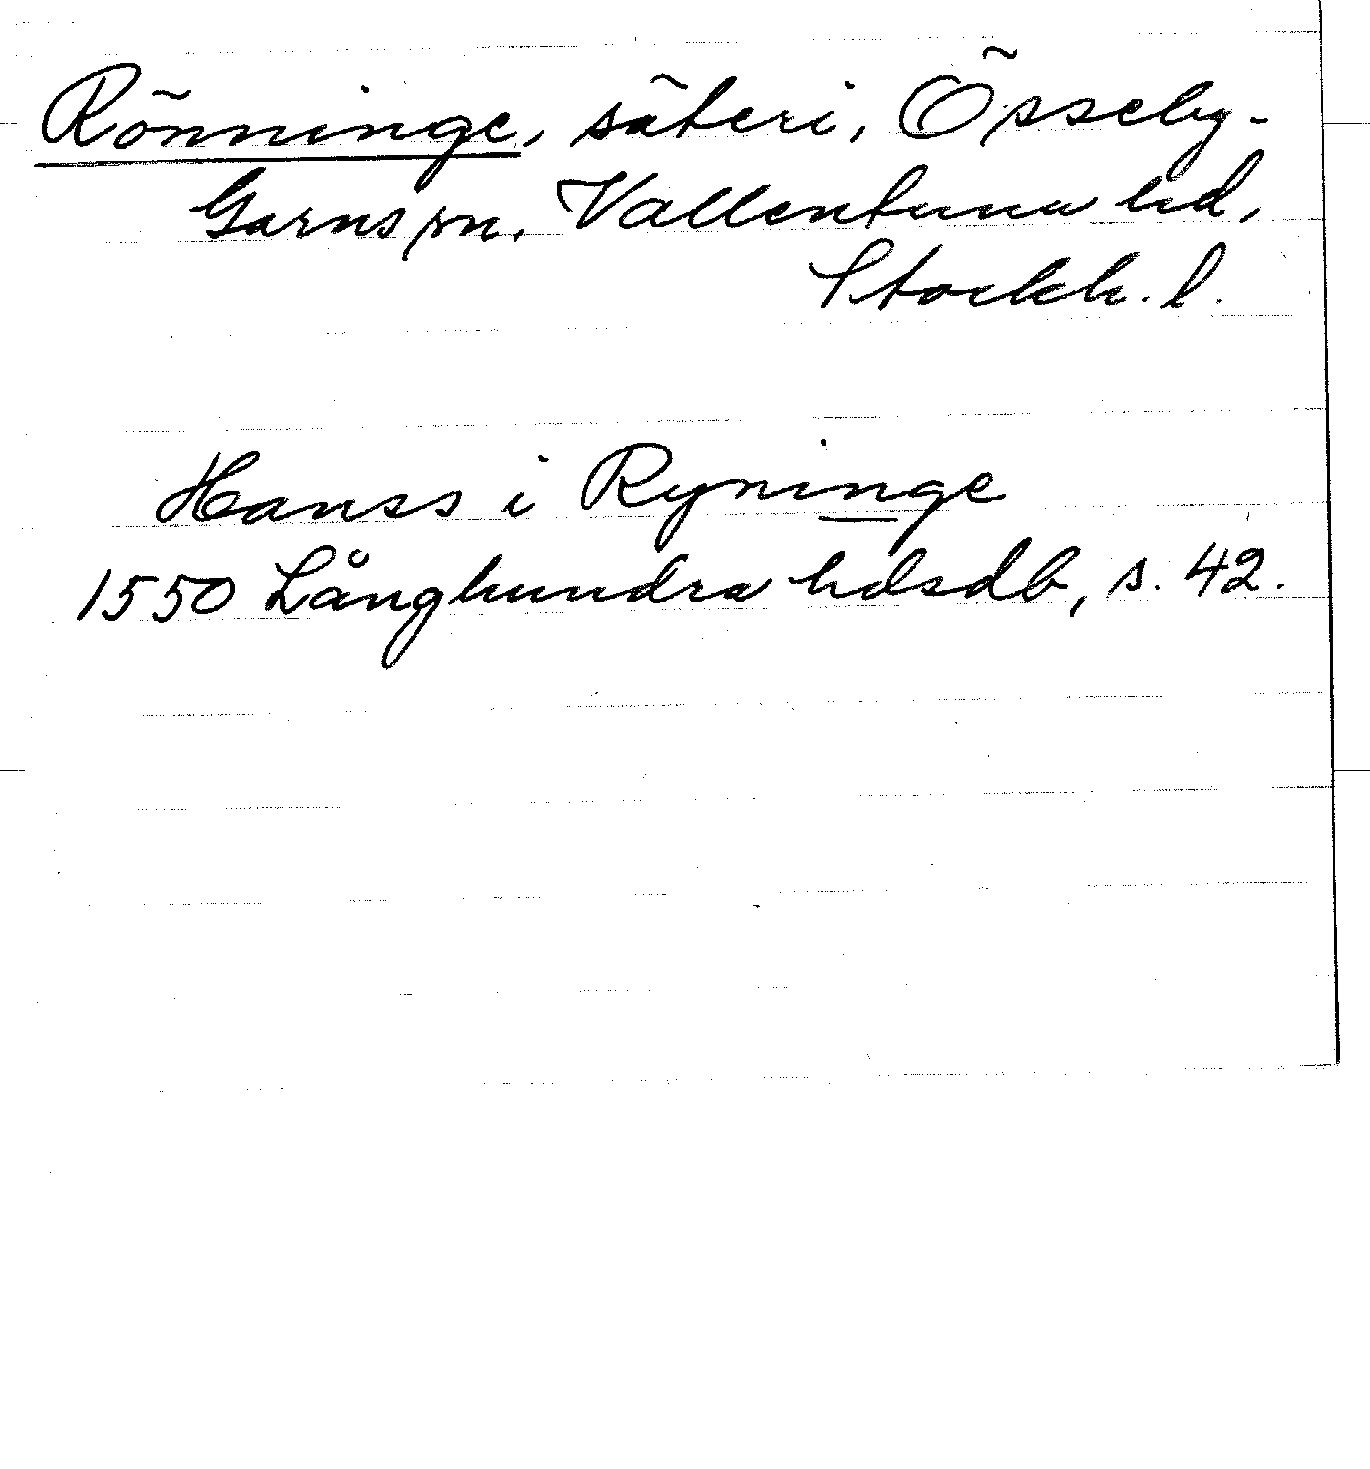 Rönninge, säteri, Össeby-
Garns sn, Vallentuna hd,
Stockh. l.
Hanss i Ryninge
1550 Långhundra hdsdb, s. 42.